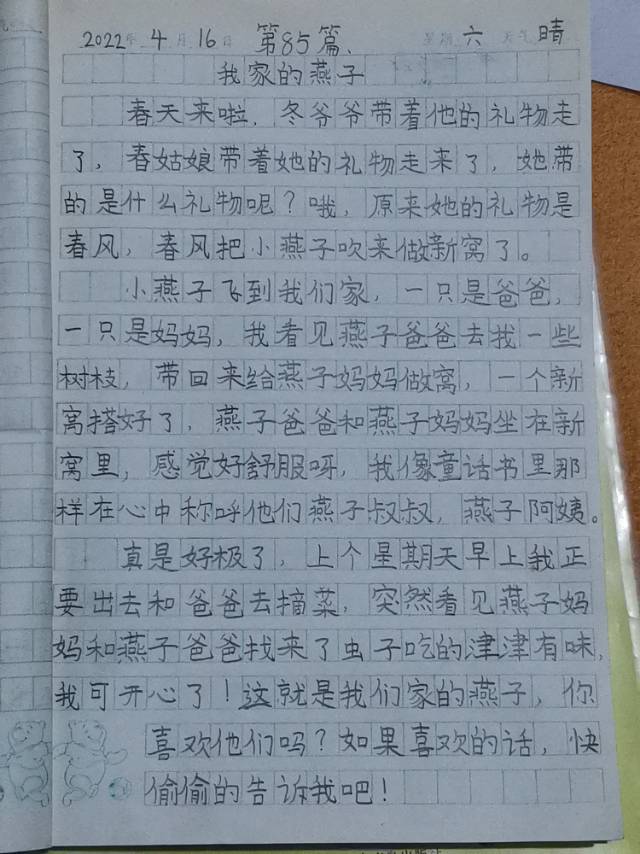 2022年 4月 16日 第85篇、 星期 六 天气 晴
我家的燕子
春天来啦，冬爷爷带着他的礼物走
了，春姑娘带着她的礼物走来了，她带
的是什么礼物呢？哦，原来她的礼物是
春风，春风把小燕子吹来做新窝了。
小燕子飞到我们家，一只是爸爸，
一只是妈妈，我看见燕子爸爸去找一些
树枝，带回来给燕子妈妈做窝，一个新
窝搭好了，燕子爸爸和燕子妈妈坐在新
窝里，感觉好舒服呀，我像童话书里那
样在心中称呼他们燕子叔叔，燕子阿姨。
真是好极了，上个星期天早上我正
要出去和爸爸去摘菜，突然看见燕子妈
妈和燕子爸爸找来了虫子吃的津津有味，
我可开心了！这就是我们家的燕子，你
喜欢他们吗？如果喜欢的话，快
偷偷的告诉我吧！